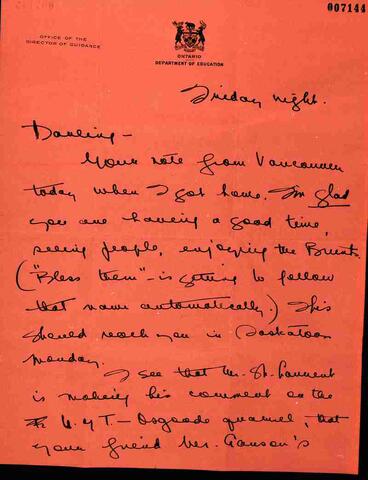 007144
OFFICE OF THE
DIRECTOR OF GUIDANCE
ONTARIO
DEPARTMENT OF EDUCATION
Friday night.
Darling –
Your note from Vancouver
today when I got home. I'm glad
you are having a good time,
seeing people, enjoying the Brunts.
("Bless them" – is getting to follow
that name automatically.) This
should reach you in Saskatoon
Monday.
I see that Mr. St. Laurent
is making his comment on the
U. of T. – Osgoode quarrel, that
your friend Mr. Cawson's